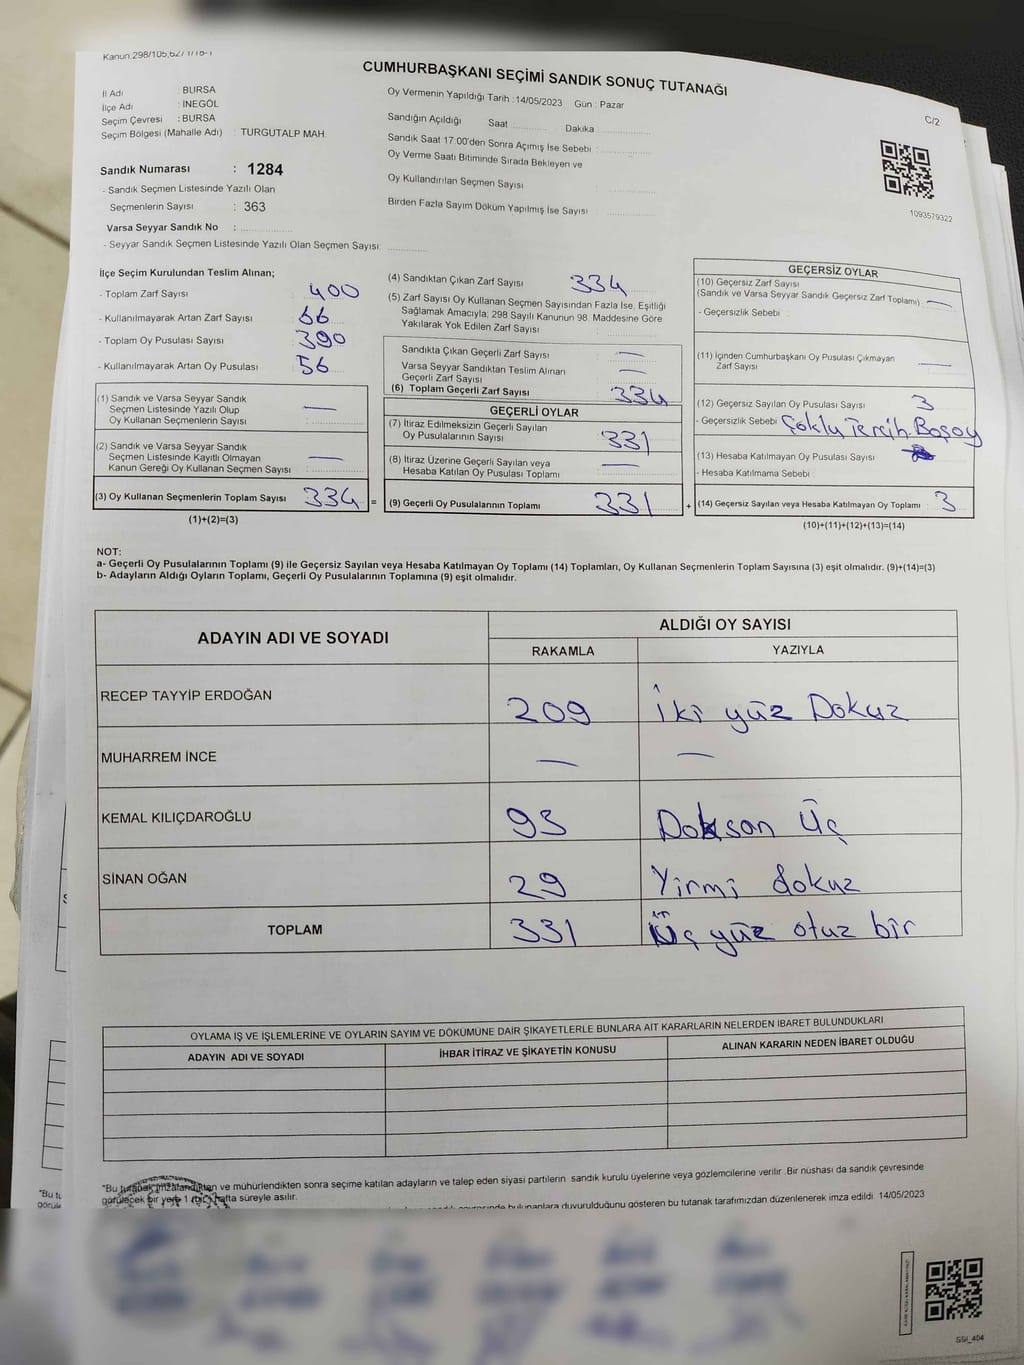 Kanun:298/105,6271/18-1
CUMHURBAŞKANI SEÇİMİ SANDIK SONUÇ TUTANAĞI
C/2
İl Adı : BURSA
İlçe Adı : İNEGÖL
Seçim Çevresi : BURSA
Seçim Bölgesi (Mahalle Adı) : TURGUTALP MAH.
Sandık Numarası : 1284
- Sandık Seçmen Listesinde Yazılı Olan
Seçmenlerin Sayısı : 363
Varsa Seyyar Sandık No :
- Seyyar Sandık Seçmen Listesinde Yazılı Olan Seçmen Sayısı:
Oy Vermenin Yapıldığı Tarih : 14/05/2023 Gün : Pazar
Sandığın Açıldığı Saat Dakika
Sandık Saat 17:00'den Sonra Açımış İse Sebebi :
Oy Verme Saati Bitiminde Sırada Bekleyen ve
Oy Kullandırılan Seçmen Sayısı :
Birden Fazla Sayım Döküm Yapılmış İse Sayısı :
1093579322
İlçe Seçim Kurulundan Teslim Alınan;
- Toplam Zarf Sayısı : 400
- Kullanılmayarak Artan Zarf Sayısı : 66
- Toplam Oy Pusulası Sayısı : 390
- Kullanılmayarak Artan Oy Pusulası : 56
(1) Sandık ve Varsa Seyyar Sandık
Seçmen Listesinde Yazılı Olup
Oy Kullanan Seçmenlerin Sayısı : —
(2) Sandık ve Varsa Seyyar Sandık
Seçmen Listesinde Kayıtlı Olmayan
Kanun Gereği Oy Kullanan Seçmen Sayısı : —
(3) Oy Kullanan Seçmenlerin Toplam Sayısı : 334 =
(1)+(2)=(3)
(4) Sandıktan Çıkan Zarf Sayısı : 334
(5) Zarf Sayısı Oy Kullanan Seçmen Sayısından Fazla İse, Eşitliği
Sağlamak Amacıyla; 298 Sayılı Kanunun 98. Maddesine Göre
Yakılarak Yok Edilen Zarf Sayısı :
Sandıkta Çıkan Geçerli Zarf Sayısı : —
Varsa Seyyar Sandıktan Teslim Alınan
Geçerli Zarf Sayısı : —
(6) Toplam Geçerli Zarf Sayısı : 334
GEÇERLİ OYLAR
(7) İtiraz Edilmeksizin Geçerli Sayılan
Oy Pusulalarının Sayısı : 331
(8) İtiraz Üzerine Geçerli Sayılan veya
Hesaba Katılan Oy Pusulası Toplamı : —
(9) Geçerli Oy Pusulalarının Toplamı : 331 +
GEÇERSİZ OYLAR
(10) Geçersiz Zarf Sayısı
(Sandık ve Varsa Seyyar Sandık Geçersiz Zarf Toplamı) : —
- Geçersizlik Sebebi :
(11) İçinden Cumhurbaşkanı Oy Pusulası Çıkmayan
Zarf Sayısı : —
(12) Geçersiz Sayılan Oy Pusulası Sayısı : 3
- Geçersizlik Sebebi : Çoklu Tercih Başoy
(13) Hesaba Katılmayan Oy Pusulası Sayısı :
- Hesaba Katılmama Sebebi :
(14) Geçersiz Sayılan veya Hesaba Katılmayan Oy Toplamı : 3
(10)+(11)+(12)+(13)=(14)
NOT:
a- Geçerli Oy Pusulalarının Toplamı (9) ile Geçersiz Sayılan veya Hesaba Katılmayan Oy Toplamı (14) Toplamları, Oy Kullanan Seçmenlerin Toplam Sayısına (3) eşit olmalıdır. (9)+(14)=(3)
b- Adayların Aldığı Oyların Toplamı, Geçerli Oy Pusulalarının Toplamına (9) eşit olmalıdır.
ADAYIN ADI VE SOYADI
ALDIĞI OY SAYISI
RAKAMLA YAZIYLA
RECEP TAYYİP ERDOĞAN 209 İki yüz Dokuz
MUHARREM İNCE — —
KEMAL KILIÇDAROĞLU 93 Doksan Üç
SİNAN OĞAN 29 Yirmi dokuz
TOPLAM 331 Üç yüz otuz bir
OYLAMA İŞ VE İŞLEMLERİNE VE OYLARIN SAYIM VE DÖKÜMÜNE DAİR ŞİKAYETLERLE BUNLARA AİT KARARLARIN NELERDEN İBARET BULUNDUKLARI
ADAYIN ADI VE SOYADI İHBAR İTİRAZ VE ŞİKAYETİN KONUSU ALINAN KARARIN NEDEN İBARET OLDUĞU
"Bu tutanak imzalandıktan ve mühürlendikten sonra seçime katılan adayların ve talep eden siyasi partilerin sandık kurulu üyelerine veya gözlemcilerine verilir. Bir nüshası da sandık çevresinde
görülecek bir yere 1 (bir) hafta süreyle asılır.
bulunanlara duyurulduğunu gösteren bu tutanak tarafımızdan düzenlenerek imza edildi. 14/05/2023
SSİ_404